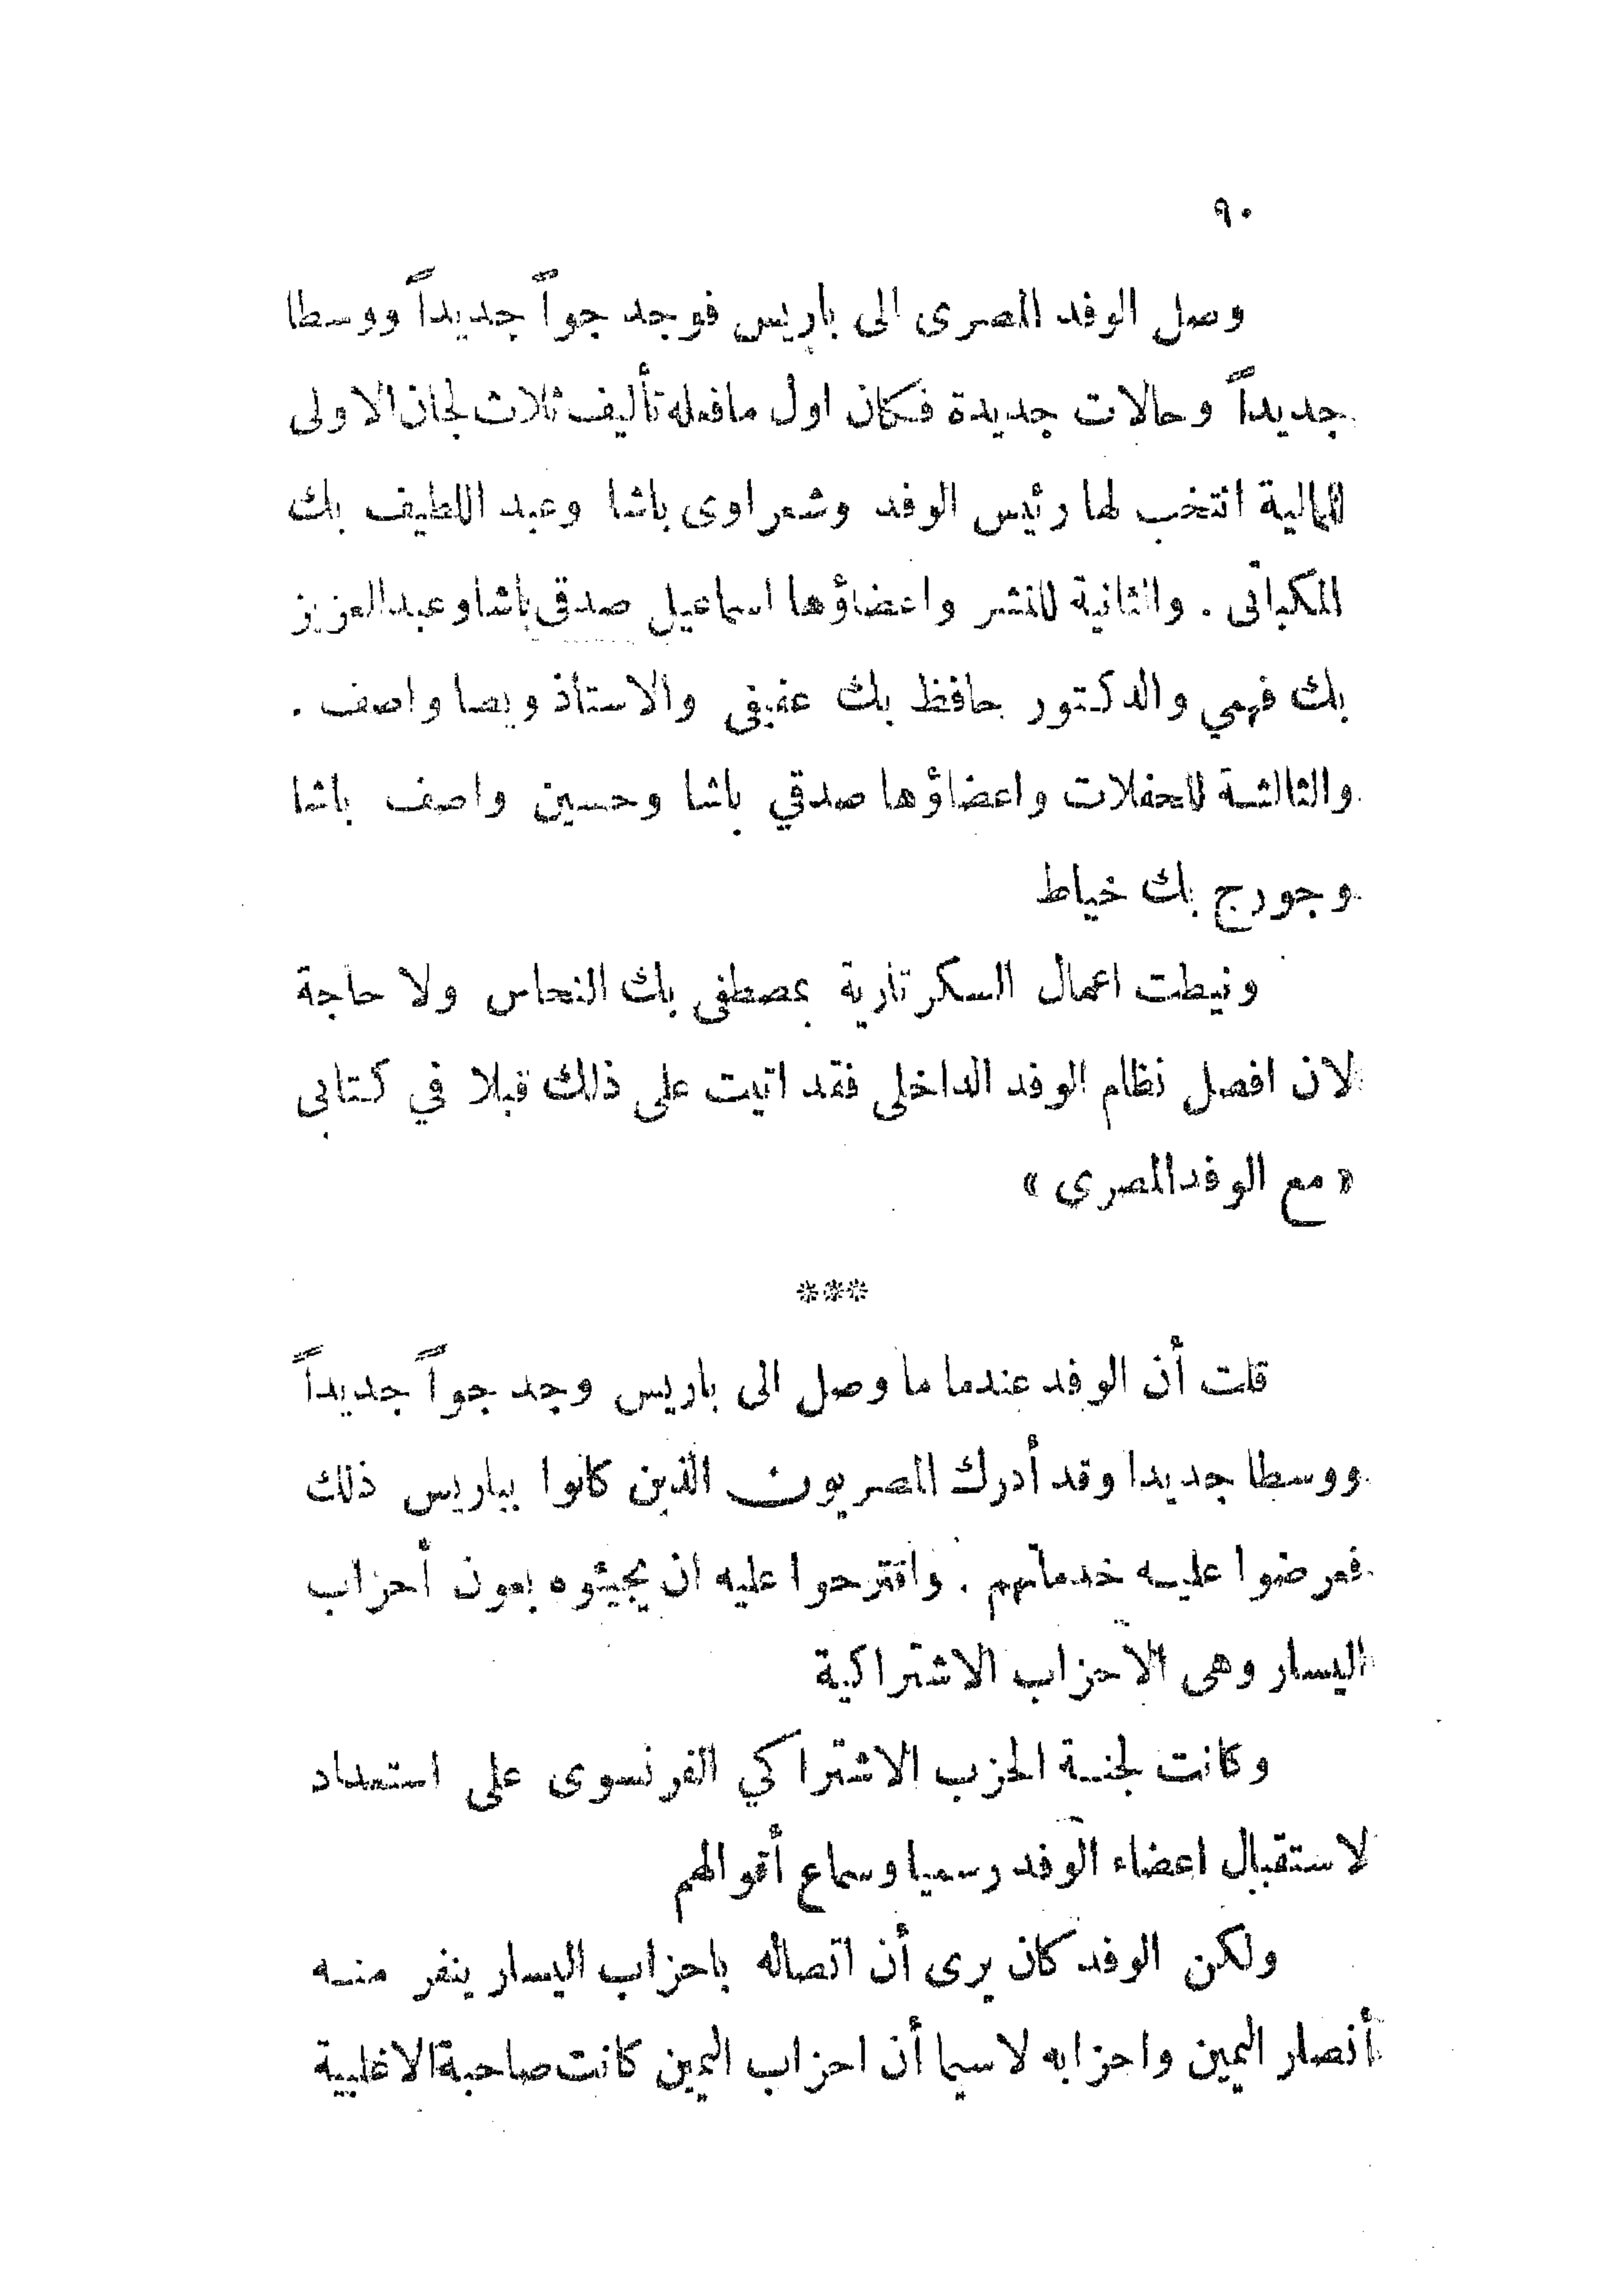 ٩٠
وصل الوفد المصرى الى باريس فوجد جواً جديداً ووسطا
جديداً وحالات جديدة فكان اول مافعله تأليف ثلاث لجان الاولى
للمالية انتخب لها رئيس الوفد وشعراوى باشا وعبد اللطيف بك
المكباتى . والثانية للنشر واعضاؤها اسماعيل صدقى باشا وعبد العزيز
بك فهمي والدكتور حافظ بك عفيفى والاستاذ ويصا واصف .
والثالثة للحفلات واعضاؤها صدقي باشا وحسين واصف باشا
وجورج بك خياط
ونيطت اعمال السكرتارية بمصطفى بك النحاس ولا حاجة
لان افصل نظام الوفد الداخلى فقد اتيت على ذلك قبلا في كتابى
« مع الوفد المصرى »
***
قلت أن الوفد عندما ما وصل الى باريس وجد جواً جديداً
ووسطا جديدا وقد أدرك المصريون الذين كانوا بباريس ذلك
فعرضوا عليه خدماتهم . واقترحوا عليه ان يجيئوه بعون أحزاب
اليسار وهى الأحزاب الاشتراكية
وكانت لجنة الحزب الاشتراكي الفرنسوى على استعداد
لاستقبال اعضاء الوفد رسميا وسماع أقوالهم
ولكن الوفد كان يرى أن اتصاله باحزاب اليسار ينفر منه
أنصار اليمين واحزابه لاسيما أن احزاب اليمين كانت صاحبة الاغلبية